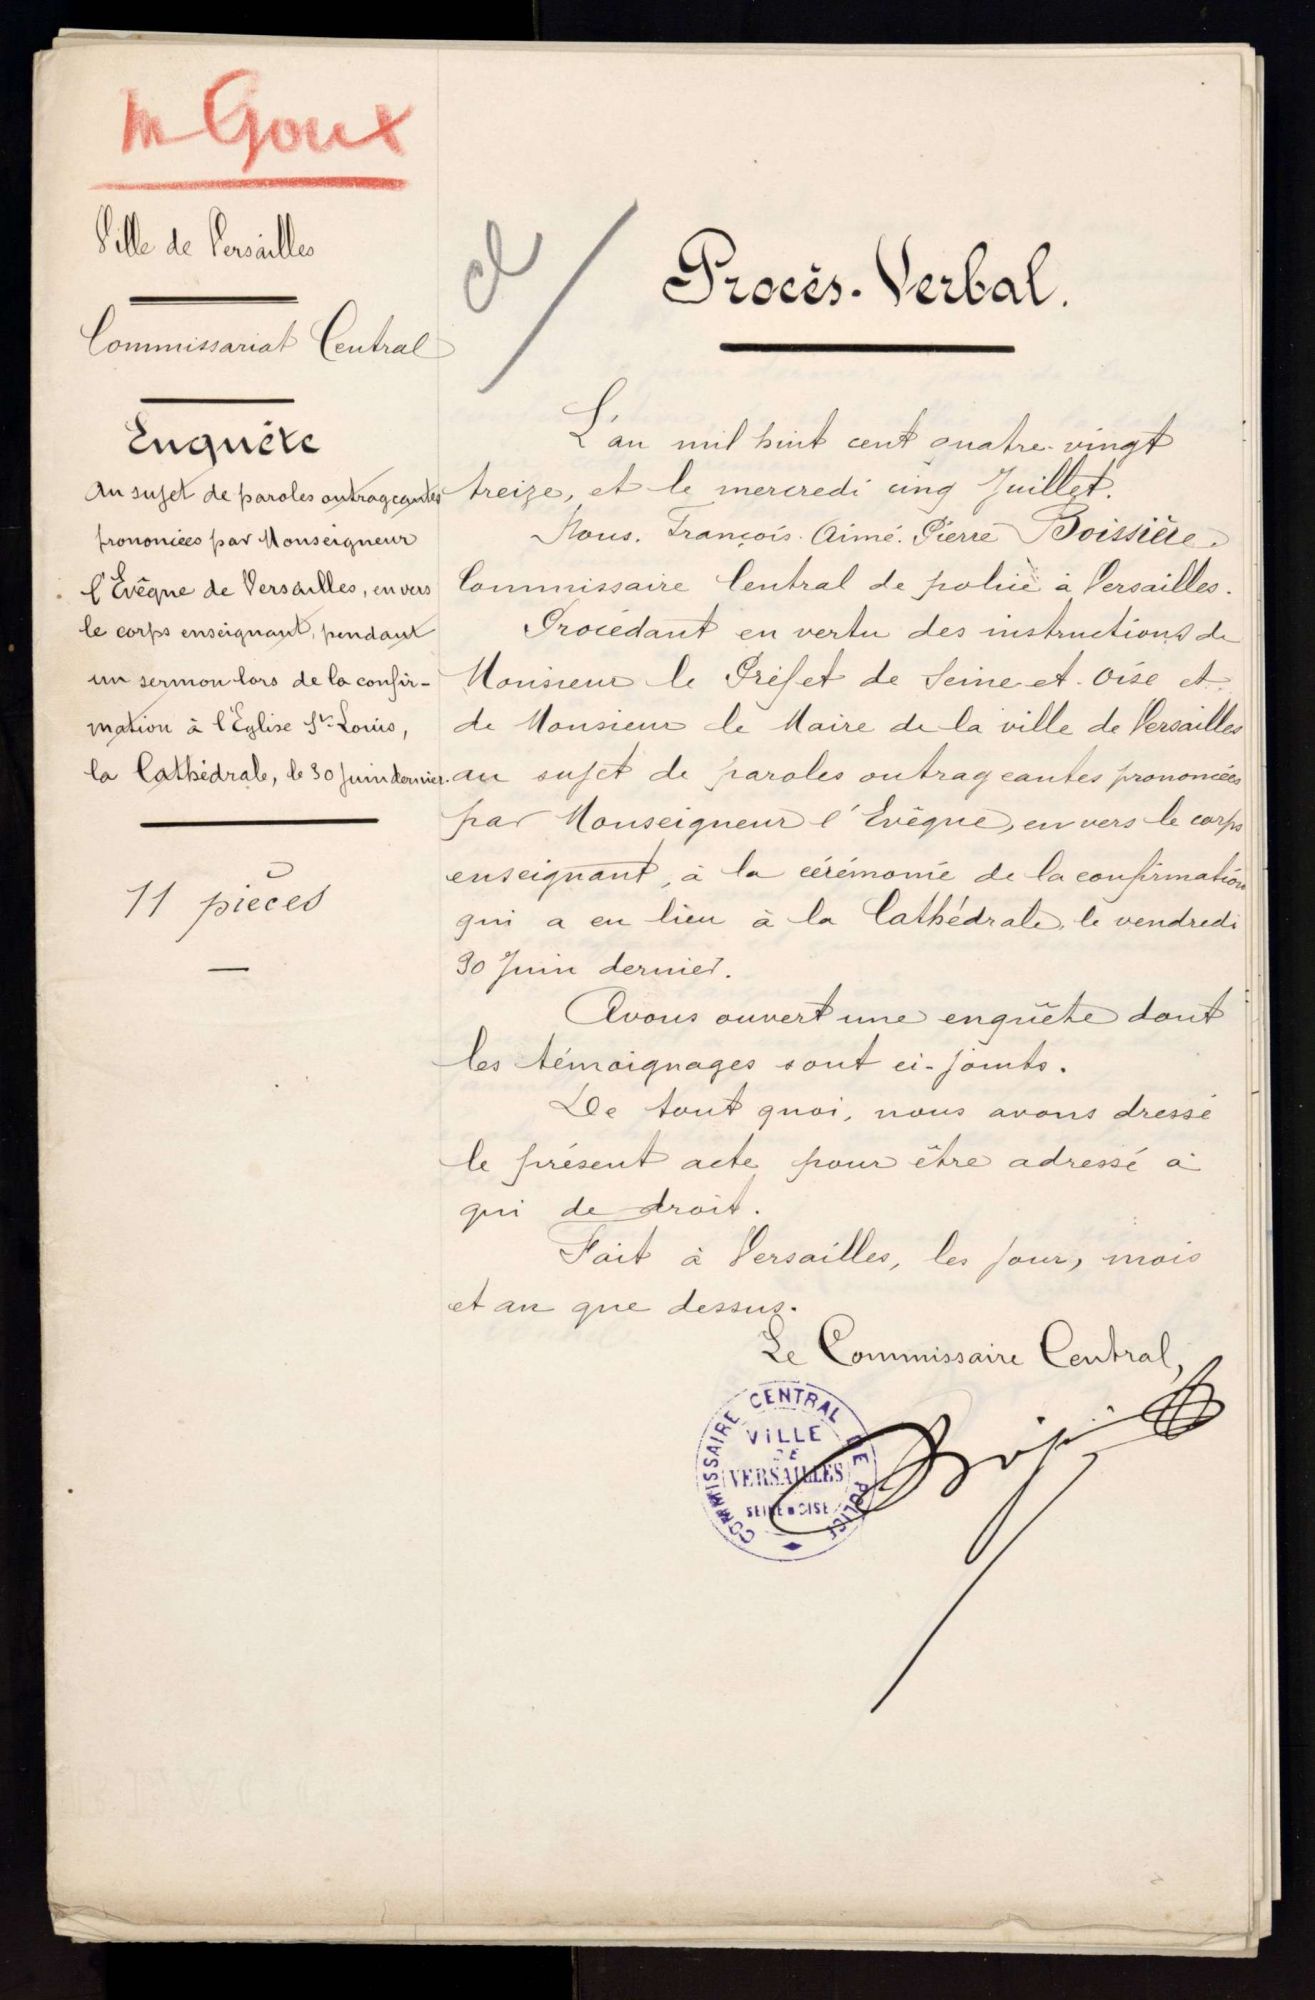 M Goux
Ville de Versailles
Commissariat Central
Enquête
au sujet de paroles outrageantes
prononcées par Monseigneur
l'Evêque de Versailles, envers
le corps enseignant, pendant
un sermon lors de la confir-
mation à l'Eglise St. Louis,
la Cathédrale, le 30 Juin dernier.
11 pièces
Procès-Verbal.
L'an mil huit cent quatre-vingt
treize, et le mercredi cinq Juillet.
Nous. François. Aimé. Pierre Boissière.
Commissaire Central de police à Versailles.
Procédant en vertu des instructions de
Monsieur le Préfet de Seine-et-Oise et
de Monsieur le Maire de la ville de Versailles
au sujet de paroles outrageantes prononcées
par Monseigneur l'Evêque, envers le corps
enseignant, à la cérémonie de la confirmation
qui a eu lieu à la Cathédrale, le vendredi
30 Juin dernier.
Avons ouvert une enquête dont
les témoignages sont ci-joints.
De tout quoi, nous avons dressé
le présent acte pour être adressé à
qui de droit.
Fait à Versailles, les jour, mois
et an que dessus.
Le Commissaire Central,
COMMISSAIRE CENTRAL DE POLICE
VILLE
DE
VERSAILLES
SEINE & OISE